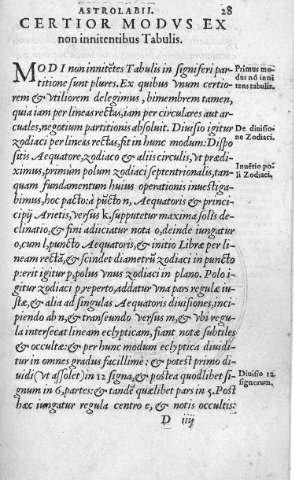 ASTROLABII. 28
CERTIOR MODVS EX
non innitentibus Tabulis.
MODI non innitẽtes Tabulis in signiferi par-
titione sunt plures. Ex quibus vnum certio-
rem & vtiliorem delegimus, bimembrem tamen,
quia iam per lineas rectas, iam per circulares aut ar-
cuales, negotium partitionis absoluit. Diuisio igitur
zodiaci per lineas rectas, fit in hunc modum: Dispo
sitis Aequatore, zodiaco & aliis circulis, vt prædi-
ximus, primum polum zodiaci septentrionalis, tan-
quam fundamentum huius operationis inuestiga-
bimus, hoc pacto: à pũcto n, Aequatoris & princi-
pij Arietis, versus k, supputetur maxima solis de-
clinatio, & fini adiiciatur nota o, deinde iungatur
o, cum l, puncto Aequatoris, & initio Libræ per li-
neam rectã, & scindet diametrũ zodiaci in puncto
p: erit igitur p, polus vnus zodiaci in plano. Polo i-
gitur zodiaci p, reperto, addatur vna pars regulæ iu-
stæ, & alia ad singulas Aequatoris diuisiones, inci-
piendo ab n, & transeundo versus m, & vbi regu-
la intersecat lineam eclypticam, fiant notæ subtiles
& occultæ: & per hunc modum ecliptica diuidi-
tur in omnes gradus facillimè: & potest primo di-
uidi (vt assolet) in 12 signa, & postea quodlibet si-
gnum in 6, partes: & tandẽ quælibet pars in 5. Post
hæc iungatur regula centro e, & notis occultis:
D iiij
Primus mo-
dus nõ inni
tens tabulis.
De diuisio-
ne Zodiaci.
Inuẽtio po-
li Zodiaci,
Diuisio 12.
signorum.